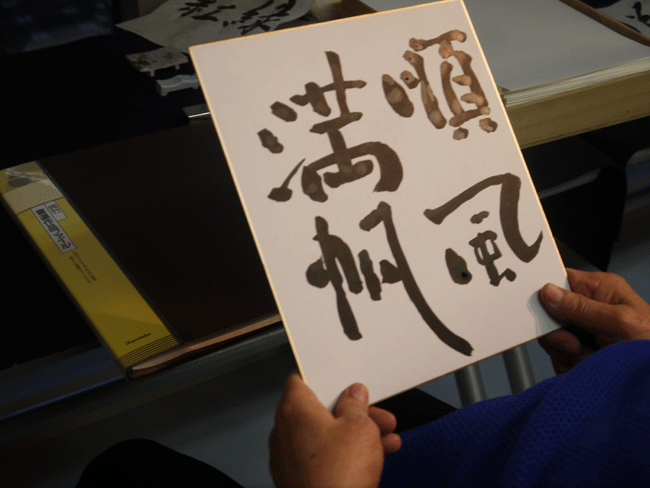 順風
満帆